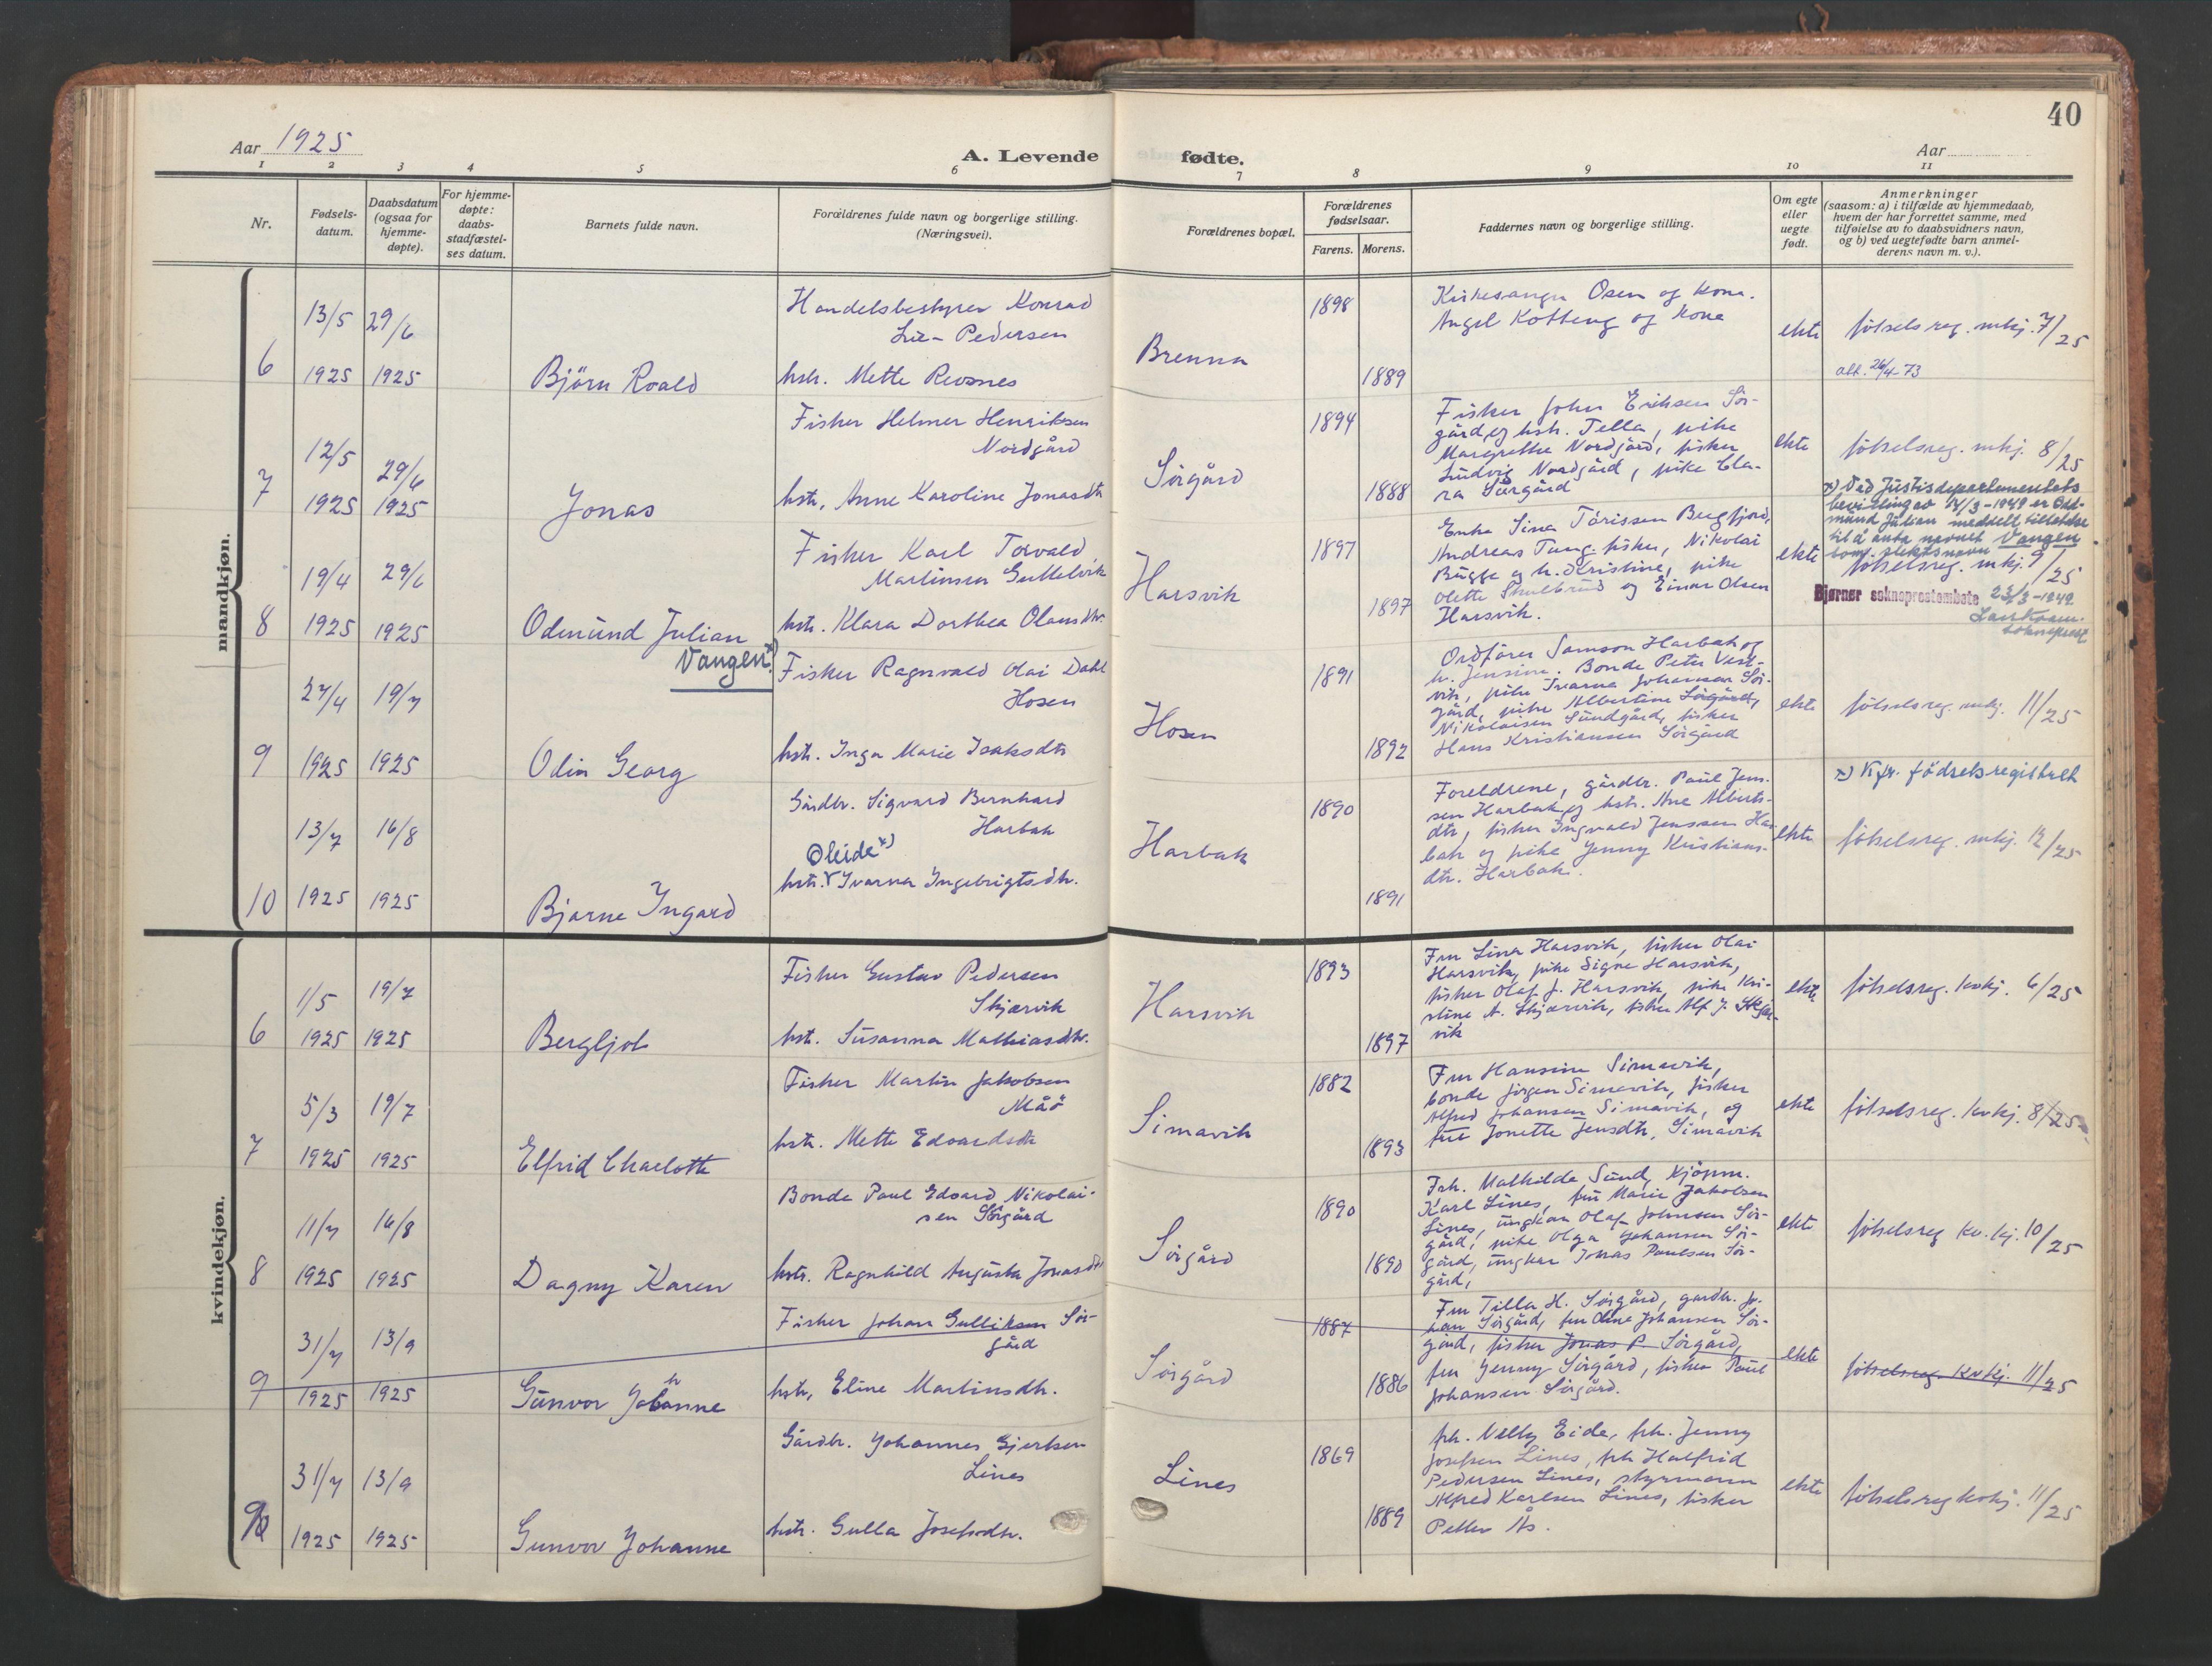 Aar 1925
A. Levende
fødte.
Aar
40
1 2 3 4 5 6 7 8 9 10 11
Nr.
Fødsels-
datum.
Daabsdatum
(ogsaa for
hjemme-
døpte).
For hjemme-
døpte:
daabs-
stadfæstel-
ses datum.
Barnets fulde navn.
Forældrenes fulde navn og borgerlige stilling.
(Næringsvei).
Forældrenes bopæl.
Forældrenes
fødselsaar.
Farens. Morens.
Faddernes navn og borgerlige stilling.
Om egte
eller
uegte
født.
Anmerkninger
(saasom: a) i tilfælde av hjemmedaab,
hvem der har forrettet samme, med
tilføielse av to daabsvidners navn,
og b) ved uegtefødte barn anmel-
derens navn m. v.).
mandkjøn.
6
13/5 29/6
1925 1925
Björn Roald
Handelsbestyrer Konrad
Lie-Pedersen
hstr. Mette Revsnes
Brenna
1898
1889
Kirkesanger Osen og kone.
Angel Kotteng og kone
ekte
fötselsreg. mkj. 7/25
att. 26/4-73
7
12/5 29/6
1925 1925
Jonas
Fisker Helmer Henriksen
Nordgård
hstr, Anne Karoline Jonasdtr
Sörgård
1894
1888
Fisker John Eriksen Sör-
gård og hstr. Tella, pike
Margrethe Nordgård, fisker
Ludvig Nordgård, pike Cla-
ra Sørgård
ekte
fötselsreg. mkj. 8/25
8
19/4 29/6
1925 1925
Odmund Julian
Vangen x)
Fisker Karl Torvald
Martinsen Guttelvik
hstr. Klara Dorthea Olausdtr.
Harsvik
1897
1897
Enke Sina Törissen Bergfjord,
Andreas Tung. fisker, Nikolai
Bugge og h. Kristine, pike
Olette og Einar Olsen
Harsvik.
ekte
x) Ved Justisdepartementets
bevilling av 14/3-1949 er Od-
mund Julian meddelt tillatelse
til å anta navnet Vangen
som slektsnavn
fötselsreg. mkj. 9/25
Bjørnør sokneprestembete 23/3-1949.
sokneprest
9
27/4 19/7
1925 1925
Odin Georg
Fisker Ragnvald Olai Dahl
Hosen
hstr. Inga Marie Isaksdtr
Hosen
1891
1892
Ordförer Samson Harbak og
h. Jensine. Bonde Peter Vest-
vik, pike Ivarna Johansen Sör-
gård, pike Albertine Sörgård,
Nikolaisen Sundgård, fisker
Hans Kristiansen Sörgård
ekte
fötselsreg. mkj. 11/25
10
13/7 16/8
1925 1925
Bjarne Ingard
Gårdbr. Sigvard Bernhard
Harbak
Oleide x)
hstr. Ivarna Ingebrigtsdtr.
Harbak
1890
1891
Foreldrene, gårdbr. Paul Jens-
sen Harbak og hstr. Ane Alberts-
dtr, fisker Ingvald Jenssen Har-
bak og pike Jenny Kristians-
dtr. Harbak.
ekte
x) Kfr. födselsregistret
fötselsreg. mkj. 12/25
kvindekjøn.
6
1/5 19/7
1925 1925
Bergljot
Fisker Gustav Pedersen
Skjærvik
hst. Susanna Mathiasdtr.
Harsvik
1893
1897
Fru Lina Harsvik, fisker Olai
Harsvik, pike Signe Harsvik,
fisker Olaf J. Harsvik, pike Kri-
stine A. Skjærvik, fisker Alf J. Skjær-
vik
ekte
fötselsreg. kvkj. 6/25
7
5/3 19/7
1925 1925
Elfrid Charlotte
Fisker Martin Jakobsen
Måö
hstr. Mette Edvardsdtr
Simavik
1882
1893
Fru Hansine Simavik,
bonde Jörgen Simavik, fisker
Alfred Johansen Simavik, og
fru Jonette Jensdtr, Simavik
ekte
fötselsreg. kvkj. 8/25
8
11/7 16/8
1925 1925
Dagny Karen
Bonde Paul Edvard Nikolai-
sen Sörgård
hstr. Ragnhild Augusta Jonasdtr
Sörgård
1890
1890
Frk. Mathilde Sund, kjöpm.
Karl Lines, fru Marie Jakobsen
Lines, ungkar Olaf Johnsen Sör-
gård, pike Olga Johansen Sör-
gård, ungkar Jonas Paulsen Sör-
gård,
ekte
fötselsreg kv.kj. 10/25
9
31/7 13/9
1925 1925
Gunvor Johanne
Fisker Johan Gulliksen Sör-
gård
hstr, Eline Martinsdtr.
Sörgård
1887
1886
Fru Tilla H. Sörgård, gardbr. Jo-
han Sörgård, fru Oline Johansen Sör-
gård, fisker Jonas P. Sörgård,
fru Jenny Sörgård, fisker Paul
Johansen Sörgård.
ekte
fötselsreg. kvkj. 11/25
9
31/7 13/9
1925 1925
Gunvor Johanne
Gårdbr. Johannes Gjertsen
Lines
hstr. Gulla Josefsdtr.
Lines
1869
1889
frk. Nelly Eide, frk. Jenny
Josefsen Lines, frk Halfrid
Pedersen Lines, styrmann
Alfred Karlsen Lines, fisker
Petter Ås.
ekte
fötselsreg kvkj. 11/25